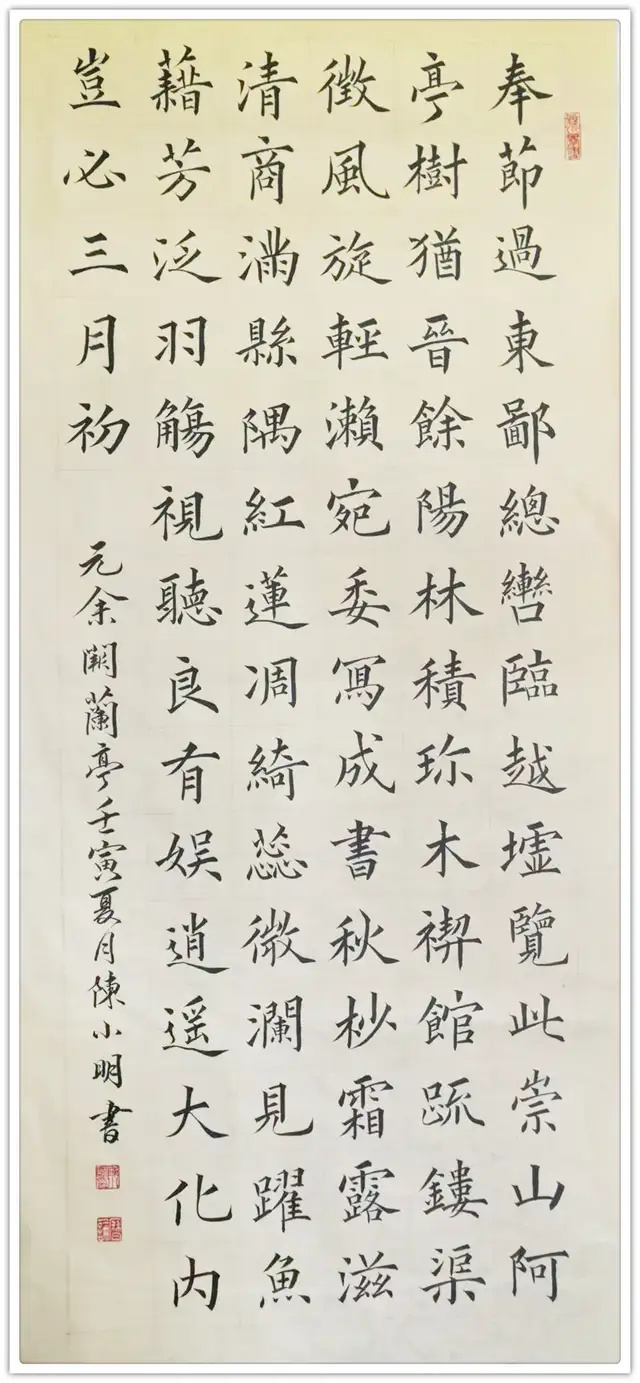 奉節過東鄙總轡臨越墟覽此崇山阿
亭樹猶晉餘陽林積珎木禊館疏鏤渠
徴風旋輕瀨宛委冩成書秋杪霜露滋
清商滿縣隅紅蓮凋綺蕊微瀾見躍魚
藉芳泛羽觴視聽良有娱逍遥大化内
豈必三月初
元余闕蘭亭壬寅夏月陳小明書